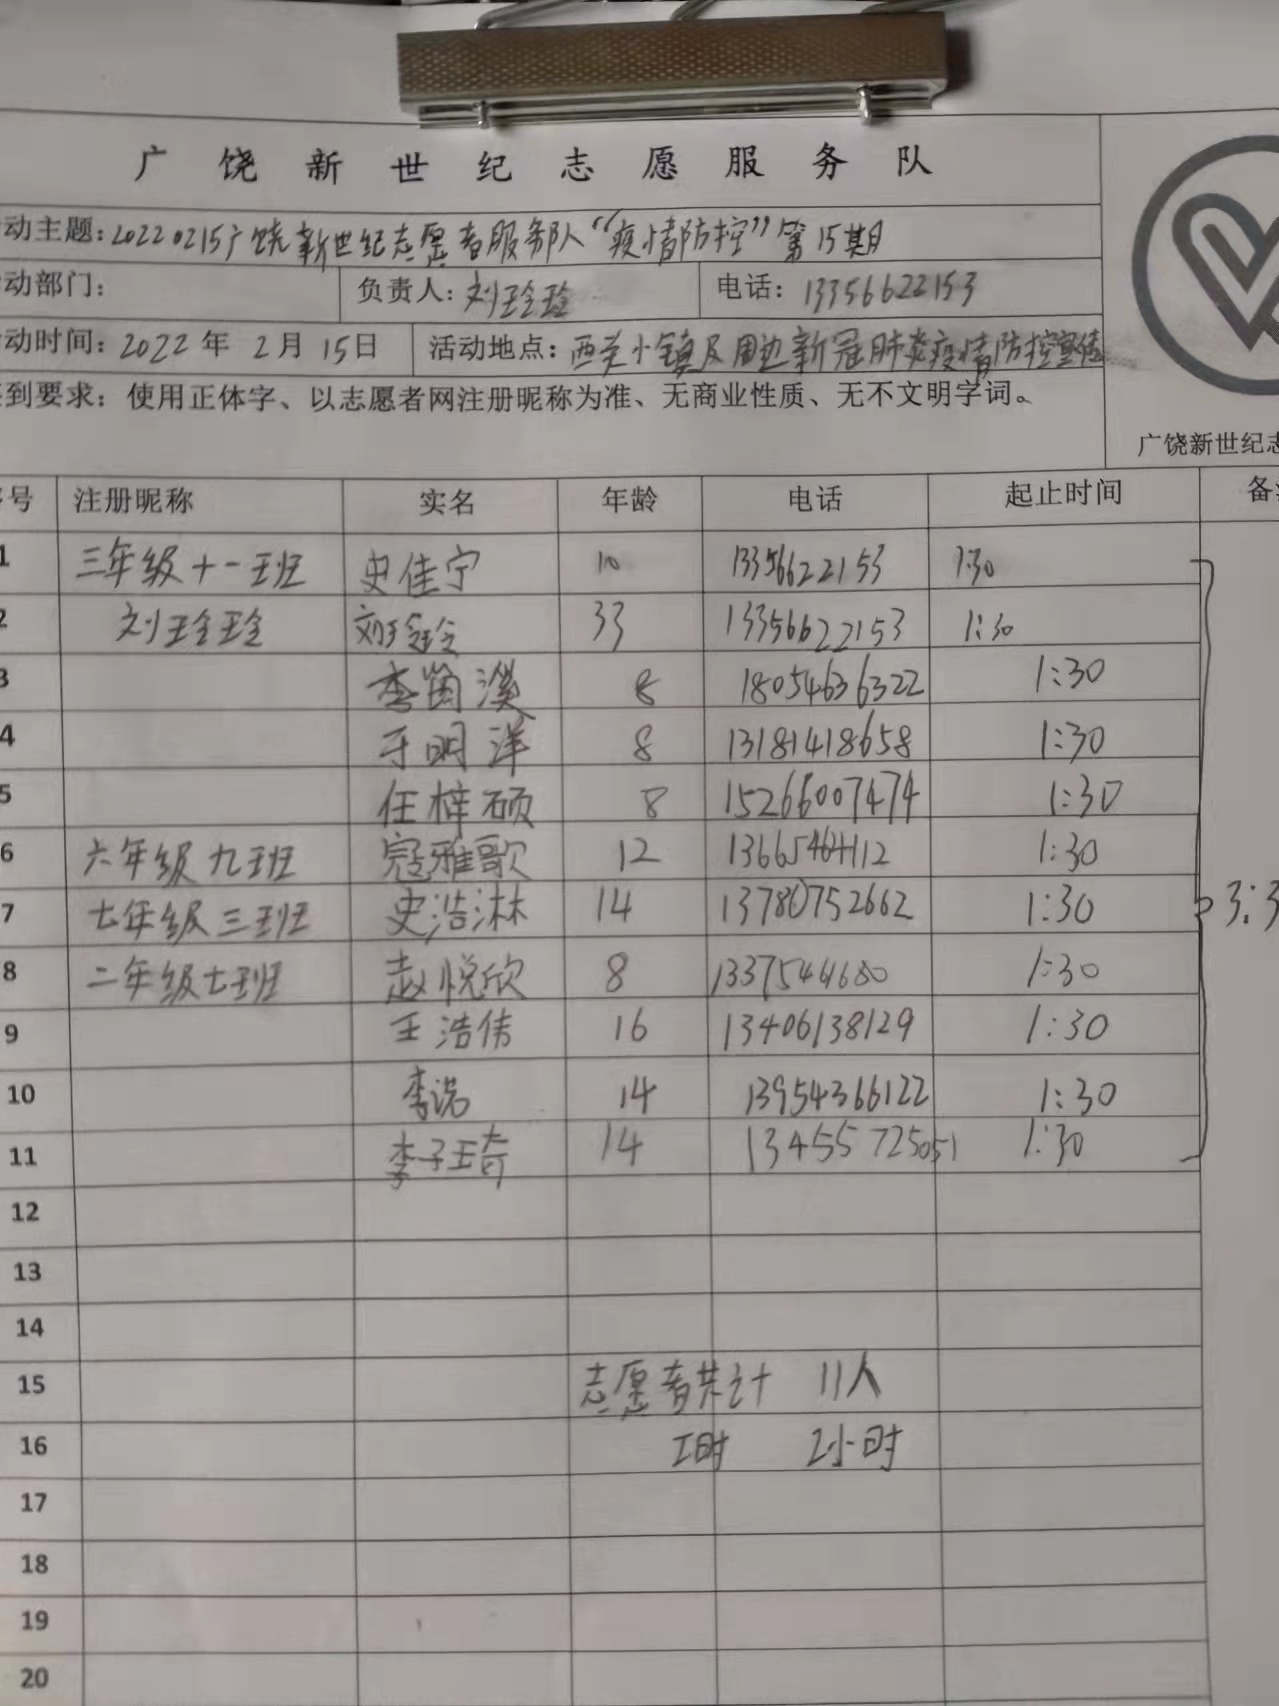 广饶新世纪志愿服务队
动主题：20220215广饶新世纪志愿者服务队“疫情防控”第15期
动部门： 负责人：刘玲玲 电话：13356622153
动时间：2022年2月15日 活动地点：西关小镇及周边新冠肺炎疫情防控宣传
到要求：使用正体字、以志愿者网注册昵称为准、无商业性质、无不文明字词。
广饶新世纪志
号 注册昵称 实名 年龄 电话 起止时间 备
1 三年级十一班 史佳宁 10 13356622153 1:30
2 刘玲玲 刘玲玲 33 13356622153 1:30
3 李 溪 8 18054636322 1:30
4 于明洋 8 13181418658 1:30
5 任梓硕 8 15266007474 1:30
6 六年级九班 寇雅歌 12 1:30
7 七年级三班 史浩淋 14 13780752662 1:30 3:3
8 二年级七班 赵悦欣 8 1:30
9 王浩伟 16 13406138129 1:30
10 李诺 14 13954366122 1:30
11 李子琦 14 13455725051 1:30
12
13
14
15 志愿者共计 11人
16 工时 2小时
17
18
19
20